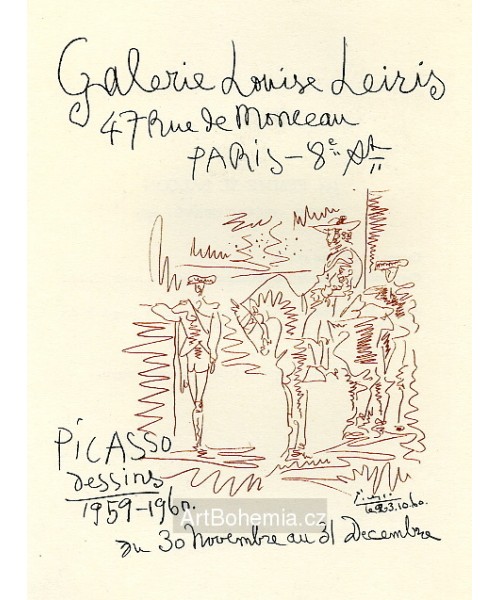 Galerie Louise Leiris
47 Rue de Monceau
PARIS - 8e Art
PiCASSO
dessins
1959-1960.
Picasso
le 23.10.60.
ArtBohemia.cz
du 30 Novembre au 31 Decembre